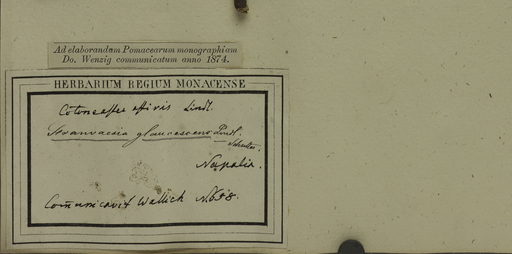 Ad elaborandam Pomacearum monographiam
Do. Wenzig communicatum anno 1874.
HERBARIUM REGIUM MONACENSE
Cotoneaster affinis Lindl.
Stranvaesia glaucescens Lindl.
Napalia.
Communicavit Wallich N. 658.